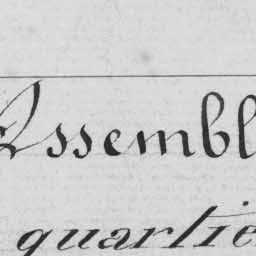 Assembl
quartie